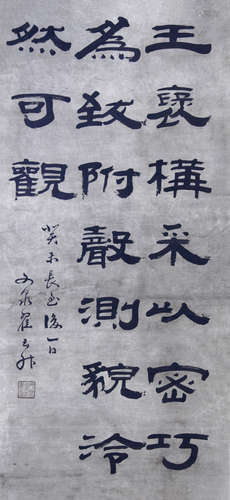 王褒構采以密巧
為致附聲測貌泠
然可觀
癸未長至後一日
文泉翟云升